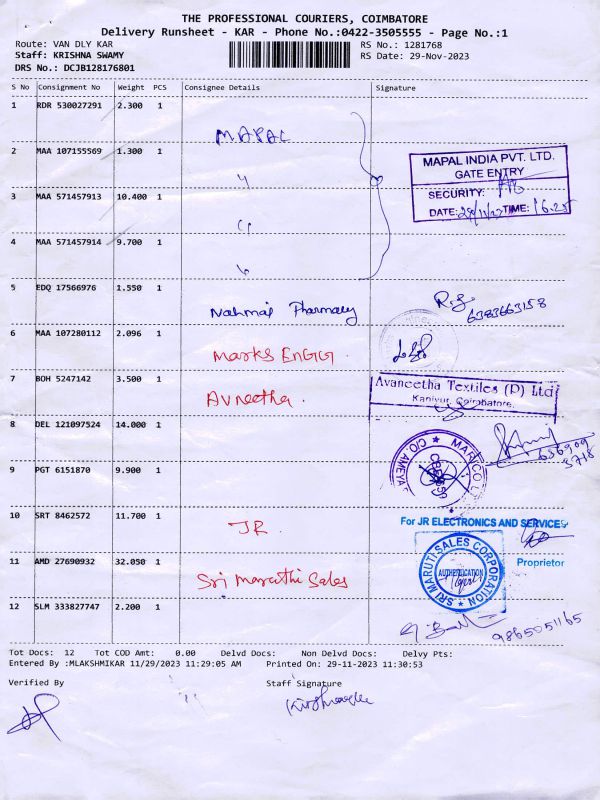 THE PROFESSIONAL COURIERS, COIMBATORE
Delivery Runsheet - KAR - Phone No.:0422-3505555 - Page No.:1
Route: VAN DLY KAR
RS No.: 1281768
Staff: KRISHNA SWAMY
RS Date: 29-Nov-2023
DRS No.: DCJB128176801
S No Consignment No Weight PCS Consignee Details Signature
1 RDR 530027291 2.300 1
MAPAL
2 MAA 107155569 1.300 1
MAPAL INDIA PVT. LTD.
GATE ENTRY
SECURITY:
DATE: 29/11/23 TIME: 16.25
3 MAA 571457913 10.400 1
4 MAA 571457914 9.700 1
5 EDQ 17566976 1.550 1
Nahmai Pharmacy
6383663158
6 MAA 107280112 2.096 1
Marks ENGG.
7 BOH 5247142 3.500 1
Avneetha.
Avaneetha Textiles (P) Ltd
Kaniyur, Coimbatore.
8 DEL 121097524 14.000 1
636909
3718
C/O AMEYA
9 PGT 6151870 9.900 1
10 SRT 8462572 11.700 1
JR.
For JR ELECTRONICS AND SERVICES
Proprietor
11 AMD 27690932 32.050 1
Sri Maruthi Sales
SRI MARUTI SALES CORPORATION
AUTHENTICATION
12 SLM 333827747 2.200 1
9865051165
Tot Docs: 12 Tot COD Amt: 0.00 Delvd Docs: Non Delvd Docs: Delvy Pts:
Entered By :MLAKSHMIKAR 11/29/2023 11:29:05 AM Printed On: 29-11-2023 11:30:53
Verified By Staff Signature